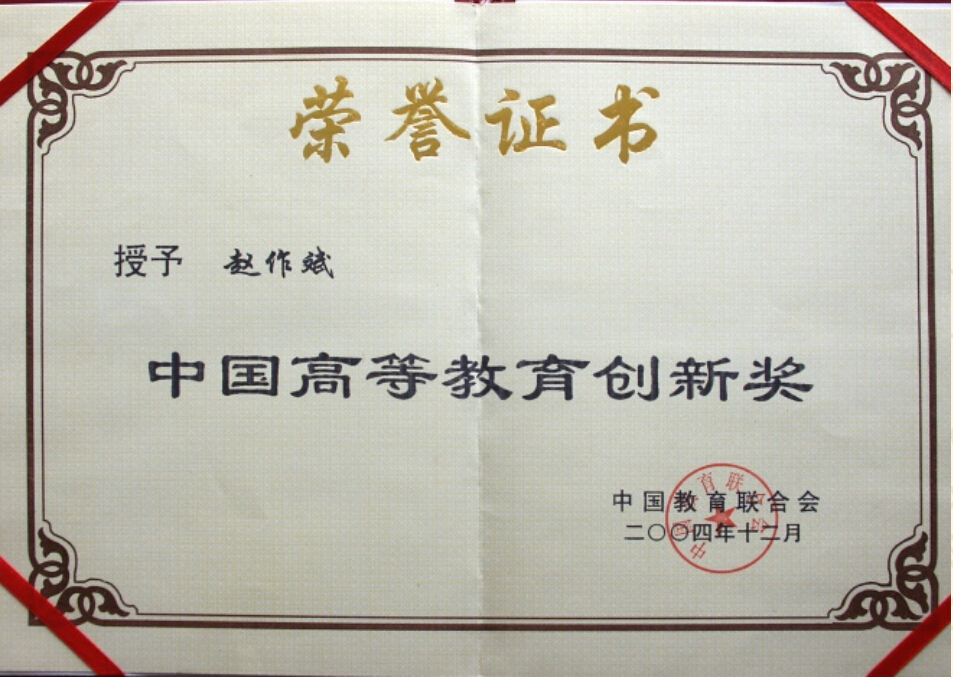 荣誉证书
授予 赵作斌
中国高等教育创新奖
中国教育联合会
二〇〇四年十二月
中国教育联合会